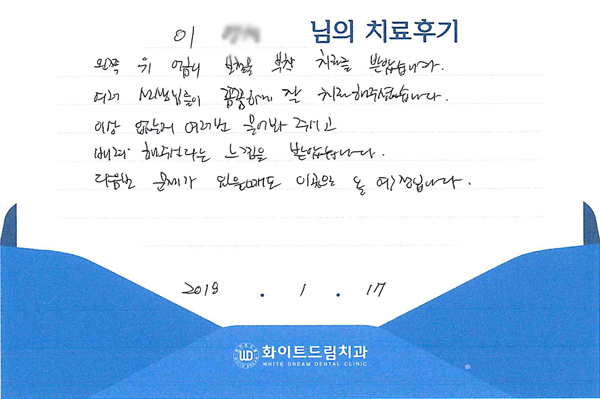 이 님의 치료후기
왼쪽 위 어금니 보철물 부착 치료를 받았습니다.
여러 선생님들이 꼼꼼하게 잘 치료해주셨습니다.
이상 없는지 여러번 물어봐 주시고
배려 해주신다는 느낌을 받았습니다.
다음번 문제가 있을때도 이곳으로 올 예정입니다.
2019 . 1 . 17
화이트드림치과
WHITE DREAM DENTAL CLINIC